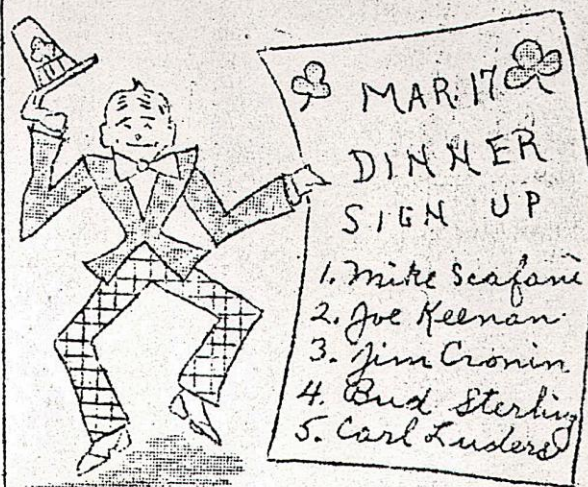 MAR. 17
DINNER
SIGN UP
1. Mike Scafani
2. Joe Keenan
3. Jim Cronin
4. Bud Sterling
5. Carl Luders